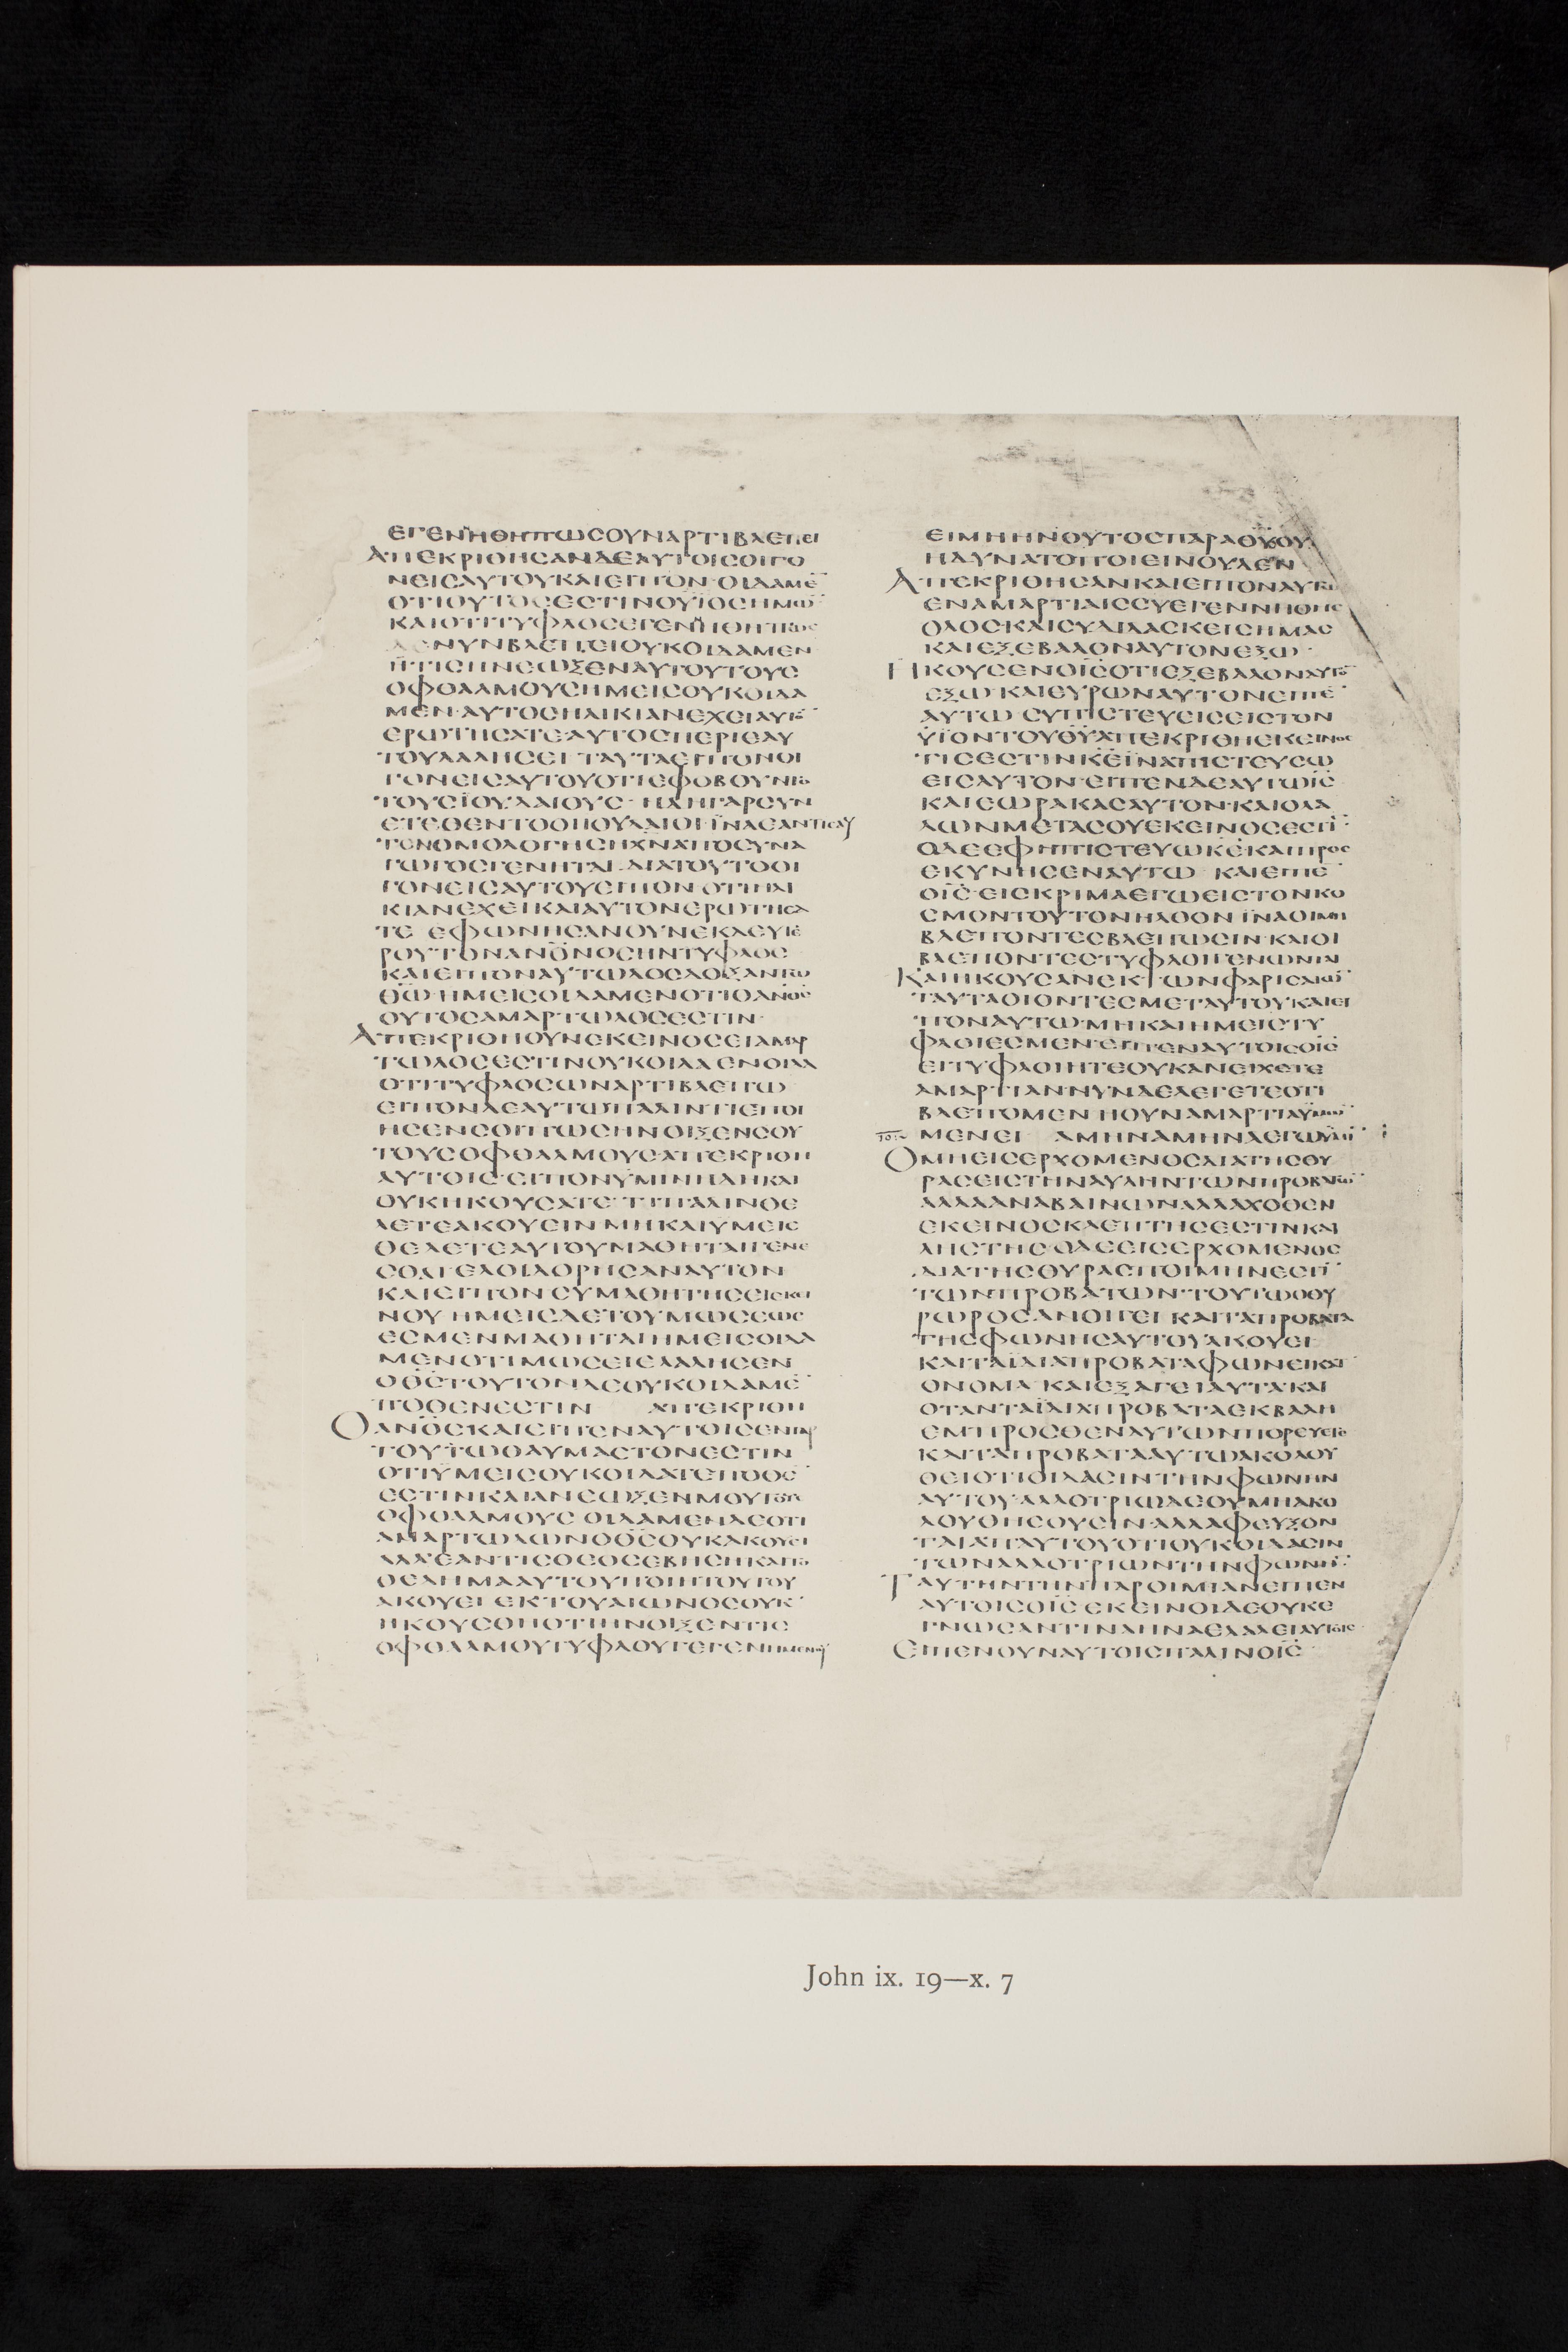 ΕΓΕΝΝΗΘΗΠΩCΟΥΝΑΡΤΙΒΛΕΠΕΙ
ΑΠΕΚΡΙΘΗCΑΝΔΕΑΥΤΟΙCΟΙΓΟ
ΝΕΙCΑΥΤΟΥΚΑΙΕΙΠΟΝ·ΟΙΔΑΜΕ̅
ΟΤΙΟΥΤΟCΕCΤΙΝΟΥΪΟCΗΜΩ̅
ΚΑΙΟΤΙΤΥΦΛΟCΕΓΕΝΝΗΘΗΠΩC
ΔΕΝΥΝΒΛΕΠΕΙΟΥΚΟΙΔΑΜΕΝ
ΗΤΙCΗΝΕΩΞΕΝΑΥΤΟΥΤΟΥC
ΟΦΘΑΛΜΟΥCΗΜΕΙCΟΥΚΟΙΔΑ
ΜΕΝ·ΑΥΤΟCΗΛΙΚΙΑΝΕΧΕΙΑΥΤΟ̅
ΕΡΩΤΗCΑΤΕ·ΑΥΤΟCΠΕΡΙΕΑΥ
ΤΟΥΛΑΛΗCΕΙ ΤΑΥΤΑΕΙΠΟΝΟΙ
ΓΟΝΕΙCΑΥΤΟΥΟΤΙΕΦΟΒΟΥΝΤΟ
ΤΟΥCΪΟΥΔΑΙΟΥC· ΗΔΗΓΑΡCΥΝ
ΕΤΕΘΕΝΤΟΟΙΙΟΥΔΑΙΟΙ·ΪΝΑΕΑΝΤΙCΑΥ
ΤΟΝΟΜΟΛΟΓΗCΗΧΝΑΠΟCΥΝΑ
ΓΩΓΟCΓΕΝΗΤΑΙ·ΔΙΑΤΟΥΤΟΟΙ
ΓΟΝΕΙCΑΥΤΟΥΕΙΠΟΝ ΟΤΙΗΛΙ
ΚΙΑΝΕΧΕΙΚΑΙΑΥΤΟΝΕΡΩΤΗCΑ
ΤΕ ΕΦΩΝΗCΑΝΟΥΝΕΚΔΕΥΤΕ
ΡΟΥΤΟΝΑΝΟ̅ΝΟCΗΝΤΥΦΛΟC
ΚΑΙΕΙΠΟΝΑΥΤΩΔΟCΔΟΞΑΝΤΩ
ΘΩ̅·ΗΜΕΙCΟΙΔΑΜΕΝΟΤΙΟΑΝΟC̅
ΟΥΤΟCΑΜΑΡΤΩΛΟCΕCΤΙΝ·
ΑΠΕΚΡΙΘΗΟΥΝΕΚΕΙΝΟCΕΙΑΜΑΡ
ΤΩΛΟCΕCΤΙΝΟΥΚΟΙΔΑ ΕΝΟΙΔΑ
ΟΤΙΤΥΦΛΟCΩΝΑΡΤΙΒΛΕΠΩ
ΕΙΠΟΝΔΕΑΥΤΩΠΑΛΙΝΤΙΕΠΟΙ
ΗCΕΝCΟΙΠΩCΗΝΟΙΞΕΝCΟΥ
ΤΟΥCΟΦΘΑΛΜΟΥCΑΠΕΚΡΙΘΗ
ΑΥΤΟΙC·ΕΙΠΟΝΥΜΙΝΗΔΗΚΑΙ
ΟΥΚΗΚΟΥCΑΤΕ ΤΙΠΑΛΙΝΘΕ
ΛΕΤΕΑΚΟΥΕΙΝ·ΜΗΚΑΙΥΜΕΙC
ΘΕΛΕΤΕΑΥΤΟΥΜΑΘΗΤΑΙΓΕΝΕ
CΘΑΙ ΕΛΟΙΔΟΡΗCΑΝΑΥΤΟΝ
ΚΑΙΕΙΠΟΝ CΥΜΑΘΗΤΗCΕΙΕΚΕΙ
ΝΟΥ ΗΜΕΙCΔΕΤΟΥΜΩCΕΩC
ΕCΜΕΝΜΑΘΗΤΑΙΗΜΕΙCΟΙΔΑ
ΜΕΝΟΤΙΜΩCΕΙΕΛΑΛΗCΕΝ
ΟΘC̅ΤΟΥΤΟΝΔΕΟΥΚΟΙΔΑΜΕ̅
ΠΟΘΕΝΕCΤΙΝ ΑΠΕΚΡΙΘΗ
ΟΑΝΟC̅ΚΑΙΕΙΠΕΝΑΥΤΟΙCΕΝΓΑΡ
ΤΟΥΤΩΘΑΥΜΑCΤΟΝΕCΤΙΝ
ΟΤΙΫΜΕΙCΟΥΚΟΙΔΑΤΕΠΟΘΕ̅
ΕCΤΙΝΚΑΙΑΝΕΩΞΕΝΜΟΥΤΟΥC
ΟΦΘΑΛΜΟΥC ΟΙΔΑΜΕΝΔΕΟΤΙ
ΑΜΑΡΤΩΛΩΝΟΘC̅ΟΥΚΑΚΟΥΕΙ
ΑΛΛ'ΕΑΝΤΙCΘΕΟCΕΒΗCΗΚΑΙΤΟ
ΘΕΛΗΜΑΑΥΤΟΥΠΟΙΗΤΟΥΤΟΥ
ΑΚΟΥΕΙ ΕΚΤΟΥΑΙΩΝΟCΟΥΚ
ΗΚΟΥCΘΗΟΤΙΗΝΟΙΞΕΝΤΙC
ΟΦΘΑΛΜΟΥCΤΥΦΛΟΥΓΕΓΕΝΗΜΕΝΟΥ
ΕΙΜΗΗΝΟΥΤΟCΠΑΡΑΘΥ̅ΟΥ
ΗΔΥΝΑΤΟΠΟΙΕΙΝΟΥΔΕΝ
ΑΠΕΚΡΙΘΗCΑΝΚΑΙΕΙΠΟΝΑΥΤΩ
ΕΝΑΜΑΡΤΙΑΙCCΥΕΓΕΝΝΗΘΗC
ΟΛΟC·ΚΑΙCΥΔΙΔΑCΚΕΙCΗΜΑC
ΚΑΙΕΞΕΒΑΛΟΝΑΥΤΟΝΕΞΩ·
ΗΚΟΥCΕΝΟΙC̅ΟΤΙΕΞΕΒΑΛΟΝΑΥΤΟ̅
ΕΞΩ·ΚΑΙΕΥΡΩΝΑΥΤΟΝΕΙΠΕ̅
ΑΥΤΩ CΥΠΙCΤΕΥΕΙCΕΙCΤΟΝ
ΫΪΟΝΤΟΥΘΥ̅ΑΠΕΚΡΙΘΗΕΚΕΙΝΟC
ΤΙCΕCΤΙΝΚΕ̅ΪΝΑΠΙCΤΕΥCΩ
ΕΙCΑΥΤΟΝ·ΕΙΠΕΝΔΕΑΥΤΩΙC̅
ΚΑΙΕΩΡΑΚΑCΑΥΤΟΝ·ΚΑΙΟΛΑ
ΛΩΝΜΕΤΑCΟΥΕΚΕΙΝΟCΕCΤΙ̅
ΟΔΕΕΦΗΠΙCΤΕΥΩΚΕ̅ΚΑΙΠΡΟC
ΕΚΥΝΗCΕΝΑΥΤΩ ΚΑΙΕΙΠΕ
ΟΙC̅·ΕΙCΚΡΙΜΑΕΓΩΕΙCΤΟΝΚΟ
CΜΟΝΤΟΥΤΟΝΗΛΘΟΝ ΪΝΑΟΙΜΗ
ΒΛΕΠΟΝΤΕCΒΛΕΠΩCΙΝ·ΚΑΙΟΙ
ΒΛΕΠΟΝΤΕCΤΥΦΛΟΙΓΕΝΩΝΤΑΙ
ΚΑΙΗΚΟΥCΑΝΕΚΤΩΝΦΑΡΙCΑΙΩ̅
ΤΑΥΤΑΟΙΟΝΤΕCΜΕΤΑΥΤΟΥΚΑΙΕΙ
ΠΟΝΑΥΤΩ·ΜΗΚΑΙΗΜΕΙCΤΥ
ΦΛΟΙΕCΜΕΝ·ΕΙΠΕΝΑΥΤΟΙCΟΙC̅
ΕΙΤΥΦΛΟΙΗΤΕΟΥΚΑΝΕΙΧΕΤΕ
ΑΜΑΡΤΙΑΝ·ΝΥΝΔΕΛΕΓΕΤΕΟΤΙ
ΒΛΕΠΟΜΕΝ ΗΟΥΝΑΜΑΡΤΙΑΫΜΩ̅
ΜΕΝΕΙ ΑΜΗΝΑΜΗΝΛΕΓΩΫΜΙ̅
ΟΜΗΕΙCΕΡΧΟΜΕΝΟCΔΙΑΤΗCΘΥ
ΡΑCΕΙCΤΗΝΑΥΛΗΝΤΩΝΠΡΟΒΑΤΩ̅
ΑΛΛΑΑΝΑΒΑΙΝΩΝΑΛΛΑΧΟΘΕΝ
ΕΚΕΙΝΟCΚΛΕΠΤΗCΕCΤΙΝΚΑΙ
ΛΗCΤΗC ΟΔΕΕΙCΕΡΧΟΜΕΝΟC
ΔΙΑΤΗCΘΥΡΑCΠΟΙΜΗΝΕCΤΙ̅
ΤΩΝΠΡΟΒΑΤΩΝ·ΤΟΥΤΩΟΘΥ
ΡΩΡΟCΑΝΟΙΓΕΙ ΚΑΙΤΑΠΡΟΒΑΤΑ
ΤΗCΦΩΝΗCΑΥΤΟΥΑΚΟΥΕΙ
ΚΑΙΤΑΪΔΙΑΠΡΟΒΑΤΑΦΩΝΕΙΚΑΤ
ΟΝΟΜΑ ΚΑΙΕΞΑΓΕΙΑΥΤΑ·ΚΑΙ
ΟΤΑΝΤΑΪΔΙΑΠΡΟΒΑΤΑΕΚΒΑΛΗ
ΕΜΠΡΟCΘΕΝΑΥΤΩΝΠΟΡΕΥΕΤΑΙ
ΚΑΙΤΑΠΡΟΒΑΤΑΑΥΤΩΑΚΟΛΟΥ
ΘΕΙΟΤΙΟΙΔΑCΙΝΤΗΝΦΩΝΗΝ
ΑΥΤΟΥ·ΑΛΛΟΤΡΙΩΔΕΟΥΜΗΑΚΟ
ΛΟΥΘΗCΟΥCΙΝ·ΑΛΛΑΦΕΥΞΟΝ
ΤΑΙΑΠΑΥΤΟΥΟΤΙΟΥΚΟΙΔΑCΙΝ
ΤΩΝΑΛΛΟΤΡΙΩΝΤΗΝΦΩΝΗ̅
ΤΑΥΤΗΝΤΗΝΠΑΡΟΙΜΙΑΝΕΙΠΕΝ
ΑΥΤΟΙCΟΙC̅ ΕΚΕΙΝΟΙΔΕΟΥΚΕ
ΓΝΩCΑΝΤΙΝΑΗΝΑΕΛΑΛΕΙΑΥΤΟΙC
ΕΙΠΕΝΟΥΝΑΥΤΟΙCΠΑΛΙΝΟΙC̅
John ix. 19—x. 7